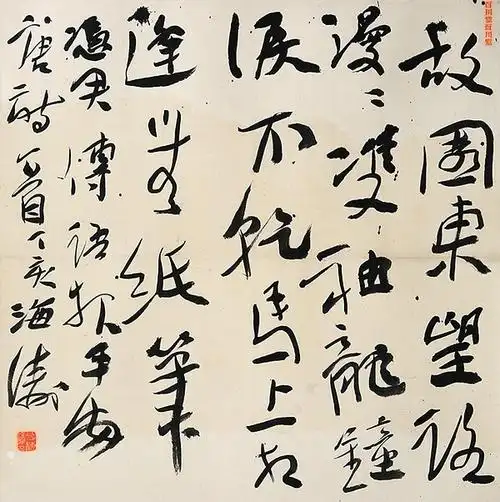 故園東望路
漫〻雙袖龍鐘
淚不乾馬上相
逢無紙筆
憑君傳語報平安
唐詩一首丁亥海濤